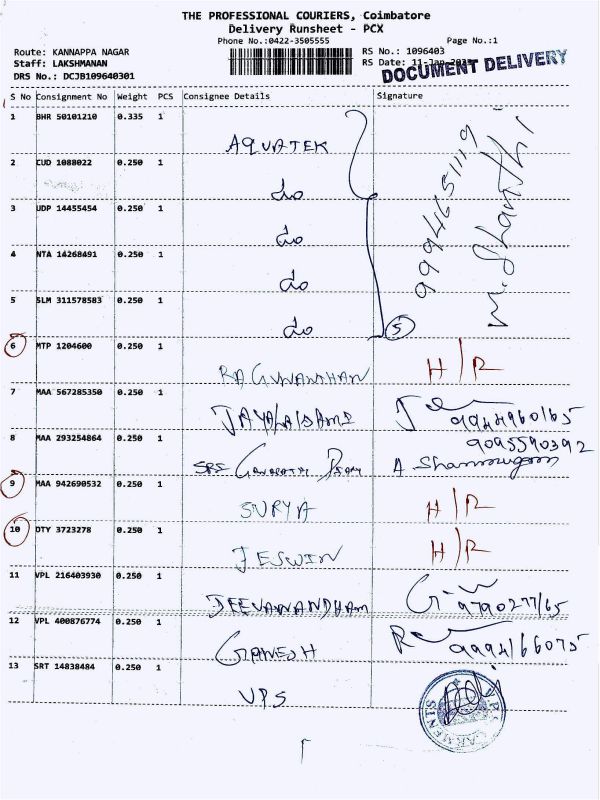 THE PROFESSIONAL COURIERS, Coimbatore
Delivery Runsheet - PCX
Phone No.:0422-3505555 Page No.:1
Route: KANNAPPA NAGAR RS No.: 1096403
Staff: LAKSHMANAN RS Date: 11-Jan-
DOCUMENT DELIVERY
DRS No.: DCJB109640301
S No Consignment No Weight PCS Consignee Details Signature
1 BHR 50101210 0.335 1
AQUATEK
2 CUD 1088022 0.250 1
do
3 UDP 14455454 0.250 1
do
4 NTA 14268491 0.250 1
do
5 SLM 311578583 0.250 1
do 5
9994651119
M. Shanthi
6 MTP 1204600 0.250 1
H/R
7 MAA 567285350 0.250 1
9944960165
8 MAA 293254864 0.250 1
9095590392
A Shanmugam
9 MAA 942690532 0.250 1
SURYA H/R
10 DTY 3723278 0.250 1
JESWIN H/R
11 VPL 216403930 0.250 1
JEEVANANDHAM 9790277165
12 VPL 400876774 0.250 1
GANESH 9994166075
13 SRT 14838484 0.250 1
VPS
GARMENTS